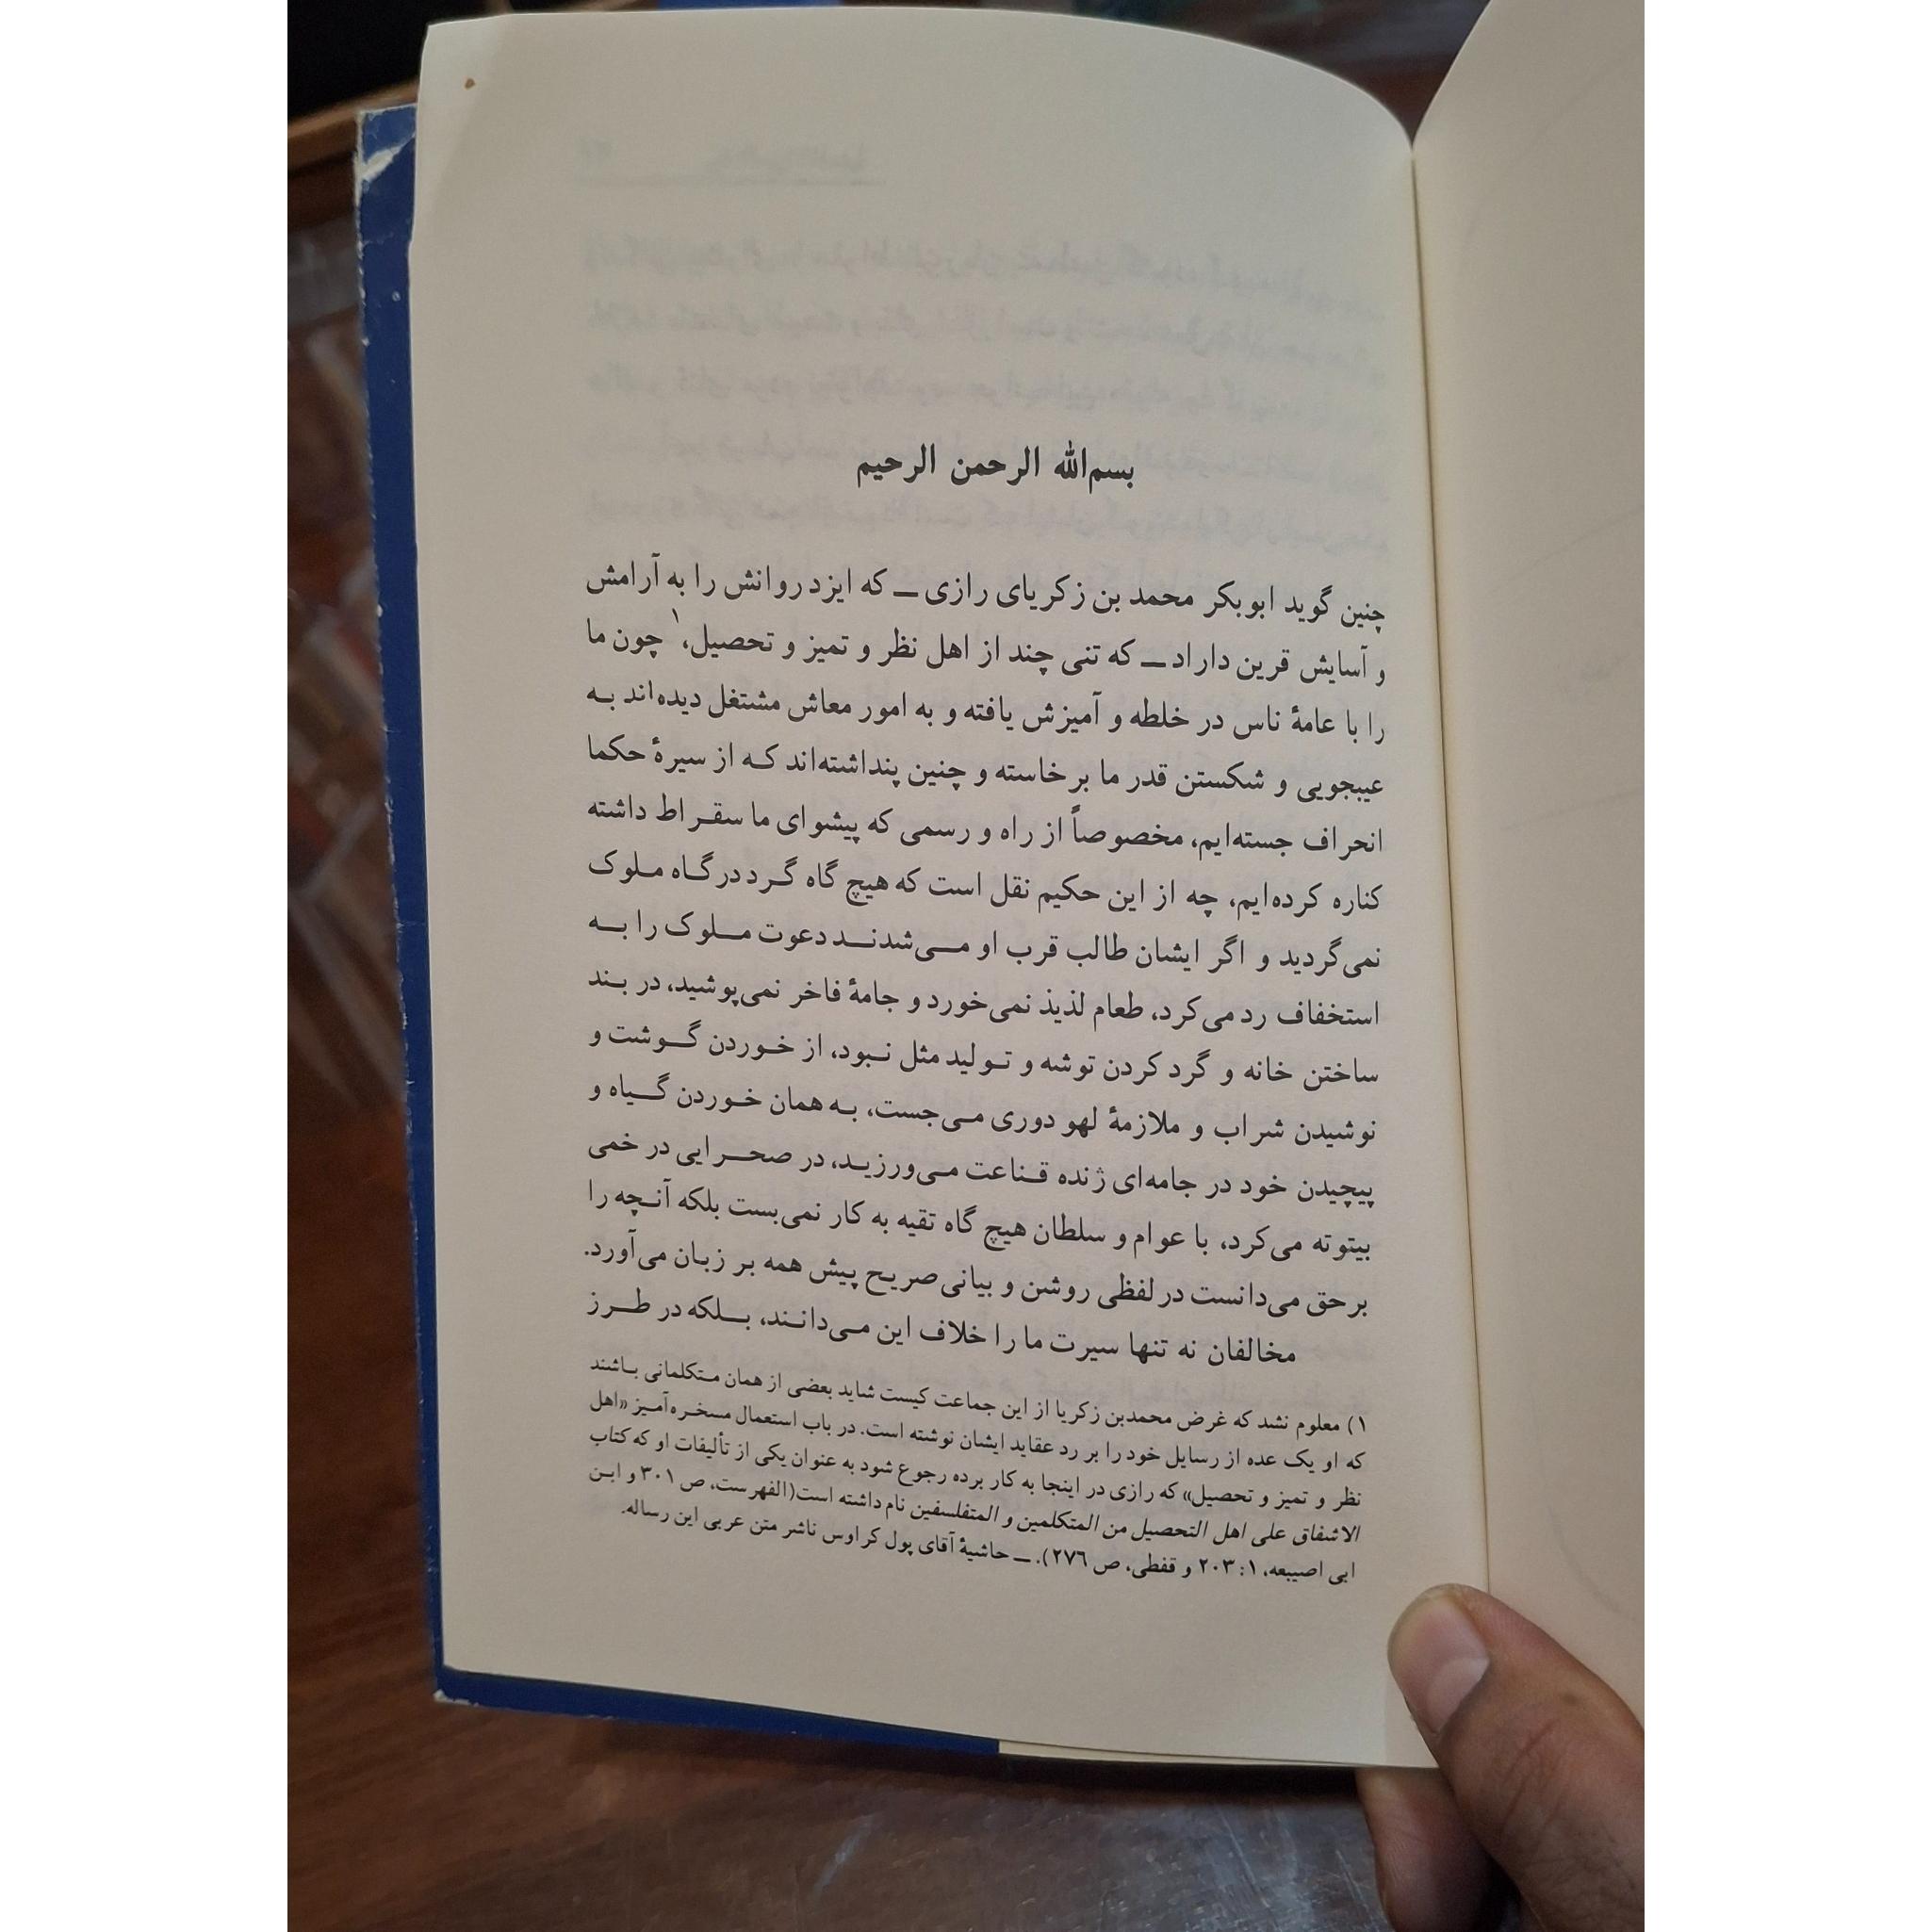 بسم‌الله الرحمن الرحیم
چنین گوید ابوبکر محمد بن زکریای رازی ــ که ایزد روانش را به آرامش
و آسایش قرین داراد ــ که تنی چند از اهل نظر و تمیز و تحصیل،۱ چون ما
را با عامهٔ ناس در خلطه و آمیزش یافته و به امور معاش مشتغل دیده‌اند به
عیبجویی و شکستن قدر ما برخاسته و چنین پنداشته‌اند که از سیرهٔ حکما
انحراف جسته‌ایم، مخصوصاً از راه و رسمی که پیشوای ما سقراط داشته
کناره کرده‌ایم، چه از این حکیم نقل است که هیچ گاه گرد درگاه ملوک
نمی‌گردید و اگر ایشان طالب قرب او می‌شدند دعوت ملوک را به
استخفاف رد می‌کرد، طعام لذیذ نمی‌خورد و جامهٔ فاخر نمی‌پوشید، در بند
ساختن خانه و گرد کردن توشه و تولید مثل نبود، از خوردن گوشت و
نوشیدن شراب و ملازمهٔ لهو دوری می‌جست، به همان خوردن گیاه و
پیچیدن خود در جامه‌ای ژنده قناعت می‌ورزید، در صحرایی در خمی
بیتوته می‌کرد، با عوام و سلطان هیچ گاه تقیه به کار نمی‌بست بلکه آنچه را
برحق می‌دانست در لفظی روشن و بیانی صریح پیش همه بر زبان می‌آورد.
مخالفان نه تنها سیرت ما را خلاف این می‌دانند، بلکه در طرز
۱) معلوم نشد که غرض محمدبن زکریا از این جماعت کیست شاید بعضی از همان متکلمانی باشند
که او یک عده از رسایل خود را بر رد عقاید ایشان نوشته است. در باب استعمال مسخره‌آمیز «اهل
نظر و تمیز و تحصیل» که رازی در اینجا به کار برده رجوع شود به عنوان یکی از تألیفات او که کتاب
الاشفاق علی اهل التحصیل من المتکلمین و المتفلسفین نام داشته است(الفهرست، ص ۳۰۱ و ابن
ابی اصیبعه، ۱: ۲۰۳ و قفطی، ص ۲۷۶). ــ حاشیهٔ آقای پول کراوس ناشر متن عربی این رساله.